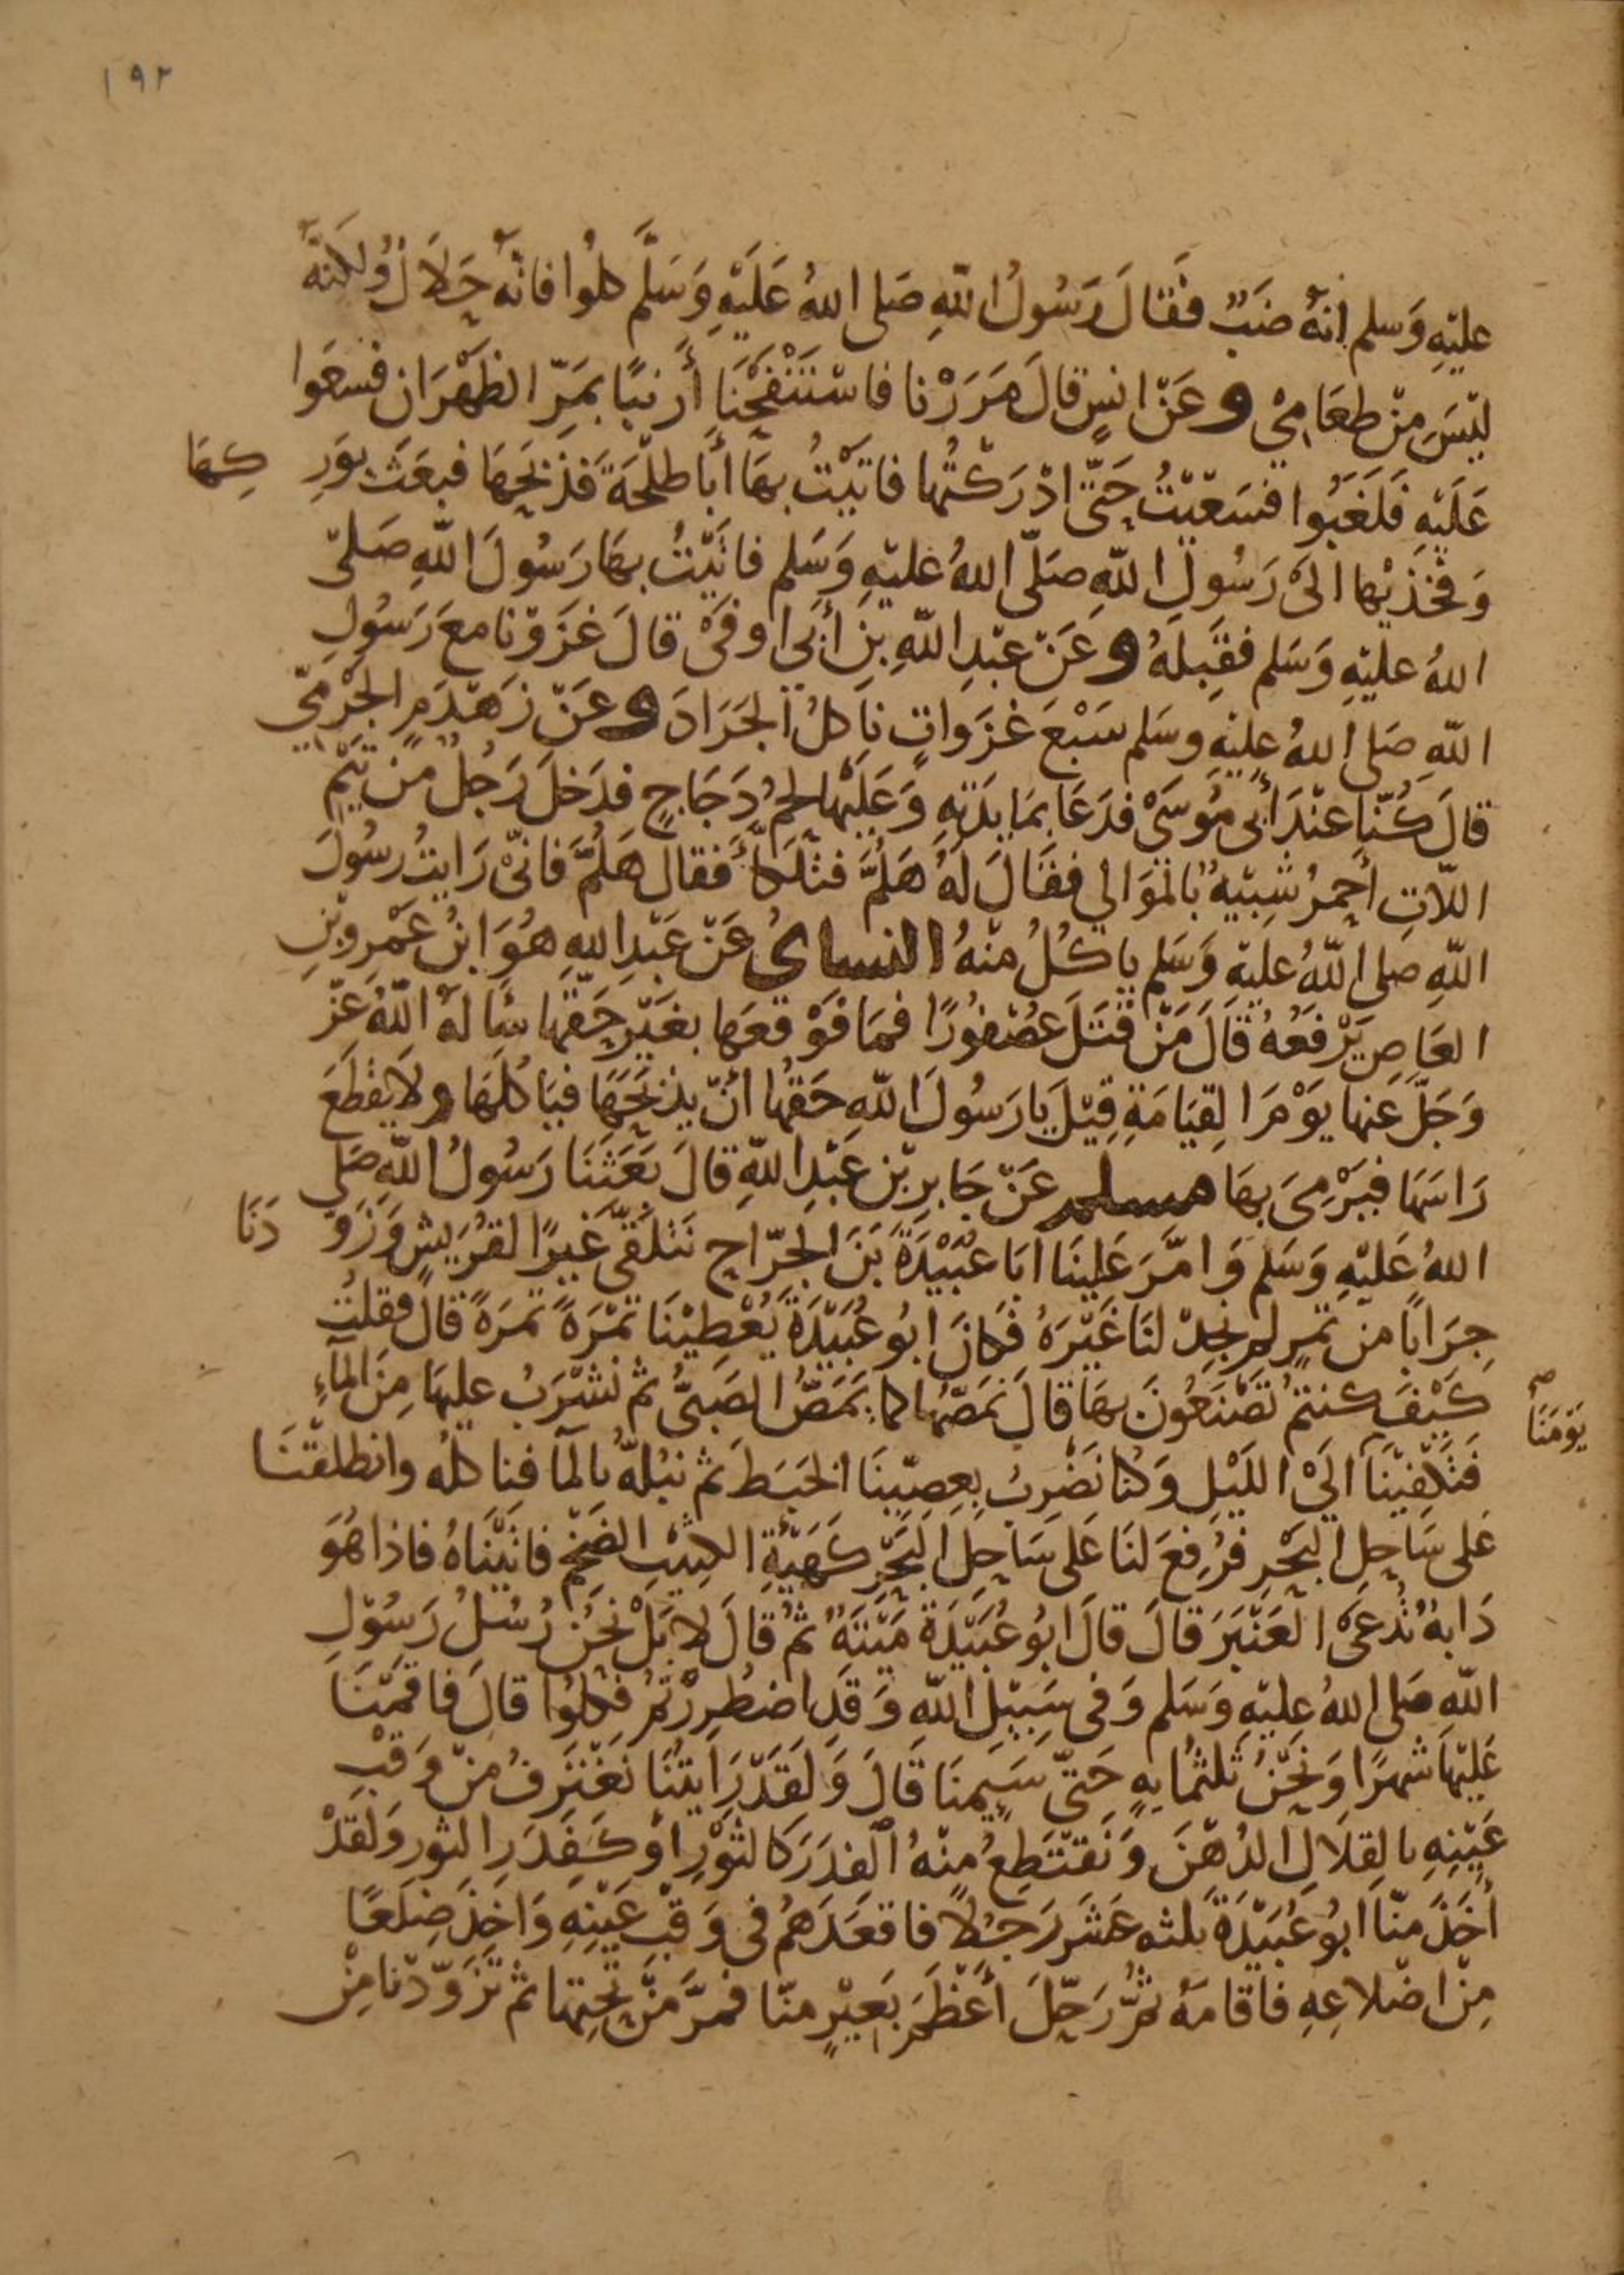 ١٩٢
عليْهِ وَسلم انهُ ضَبٌ فَقالَ رَسُولُ اللّهِ صَلى اللهُ عَلَيْهِ وَسَلَّم كلوُا فانّهُ حَلاَلٌ ولكنهُ
ليْسَ مِنْ طعَامِىْ وعَنْ انسٍ قالَ مَرَرْنا فاسْتَنْفَجْنَا أَرْنبًا بمَرِّ الظهْرَان فسعَوا
عَلَيْهِ فَلَغَبُوا فسَعَيْتُ حَتّى ادْرَكْتُها فاتيْتُ بهَا أبَا طلْحَةَ فَذبَحِهَا فبعَثَ بوَرِ كِهَا
وَفخِذيْها الىَ رَسُولِ اللّهِ صَلّى اللهُ عليْهِ وَسَلِم فاتيْتُ بهَا رَسُولَ اللّهِ صَلىّ
اللهُ عليْهِ وَسَلم فقِبِلهُ وعَنْ عبْدِ اللّهِ بنِ أبى اوفىْ قالَ غزَوْنا معَ رَسُولِ
اللّهِ صَلى اللهُ عليْهِ وسَلم سَبْعَ غزَوَاتٍ ناَكلُ الجَرَادَ وعَنْ زَهْدَمٍ الجَرْمِىّ
قالَ كُنّا عنْدَ أبى مُوسَىْ فدَعَا بمَايدَتِهِ وَعَليْهَا لحمُ دَجَاجٍ فدَخلَ رَجُلٌ مِنْ تيْمِ
اللّاتِ أحمرُ شِبيْهٌ بالموَالي فقالَ لهُ هَلُمَّ فتلَكأَ فقال هَلُمَّ فانىّ رَايتُ رسُولَ
اللّهِ صلى اللّهُ عليْهِ وَسَلم ياكُلُ منْهُ النساىُ عَنْ عَبْدِ اللهِ هُوَ ابنُ عَمْرِوبْنِ
العَاصِ يَرْفعُهُ قالَ مَنْ قتَلَ عصْفوُرًا فمَا فوْقعَها بغَيْرِ حَقّها سَالهُ اللّهُ عَزّ
وَجَلّ عَنها يوْمَ القِيَامَةِ قِيْلَ يا رَسُولَ اللّهِ حَقهُا انْ يذْبَحَهَا فيَاكلَهَا ولاَ يقطَعَ
رَاسَهَا فيَرْمِىَ بهَا مسلم عَنْ جَابرِ بْن عَبْدِ اللّهِ قالَ بَعَثنَا رَسُولُ اللّهِ صَلى
اللهُ عَليْهِ وَسَلم وَامَّرَ عَليْنَا ابَا عُبيْدَةَ بنَ الجرّاحِ نَتلَقّى عِيرًا لقرُيشٍ وَزَوّ دَنَا
جِرَابًا منْ تمْرٍ لم نجدْ لنَا غيْرَهُ فكانَ ابُو عُبَيْدَةَ يُعْطِيْنَا تمْرَةً تمرَةً قالَ فقلتُ
كَيْفَ كنتمْ تصْنَعُونَ بهَا قالَ نمَصّها كما يمَصُّ الصَبىُّ ثم نشْرَبُ عليهَا مِنَ المآءِ
فتَكْفِيْنَا يَوْمَنَا الىَ اللَيْلِ وَكنا نضْرِبُ بِعِصِيّنَا الخبَطَ ثم نبُلهُ بالمآ فنا كلهُ وانطلقْنَا
عَلى سَاحِلِ البحْرِ فرُفِعَ لنَا عَلى سَاحِلِ البَحْرِ كَهَيْئَةِ الكثيْبِ الضَخْمِ فاتيْنَاهُ فاذا هُوَ
دَابةٌ تُدْعَىْ العَنْبَرَ قالَ قالَ ابُو عُبَيْدَةَ ميْتَةٌ ثم قالَ لا بَلْ نحْنُ رُسُلُ رَسُوْلِ
اللّهِ صَلى اللهُ عليْهِ وَسَلم وَفى سَبيْلِ اللّهِ وَقَدِ اضطُرِرْتم فكلوُا قالَ فاقمْنَا
عَليْهَا شهرًا وَنحْنُ ثلثمُايهٍ حَتىّ سَمِنَا قالَ وَلقدْ رَايتنَا نَغْترَفُ منْ وَقْبِ
عَيْنِهِ بالقِلَالِ الدُهْنَ وَنقْتَطِعُ مِنْهُ الفِدَرَ كالثوْرِ أو كَفَدَرِ الثورِ وَلقدْ
أخَذَ منّا ابُو عُبَيْدَةَ ثلثه عَشَرَ رَجُلًا فاقعَدَهُمْ فى وَقبِ عَيْنِهِ وَاخذَ ضِلَعًا
مِنْ اضْلاعِهِ فاقامَهُ ثمَّ رَحّلَ أَعْظمَ بَعيْرٍ منّا فمرَّ مِنْ تحْتِهَا ثم تزَوّدْنا مِنْ